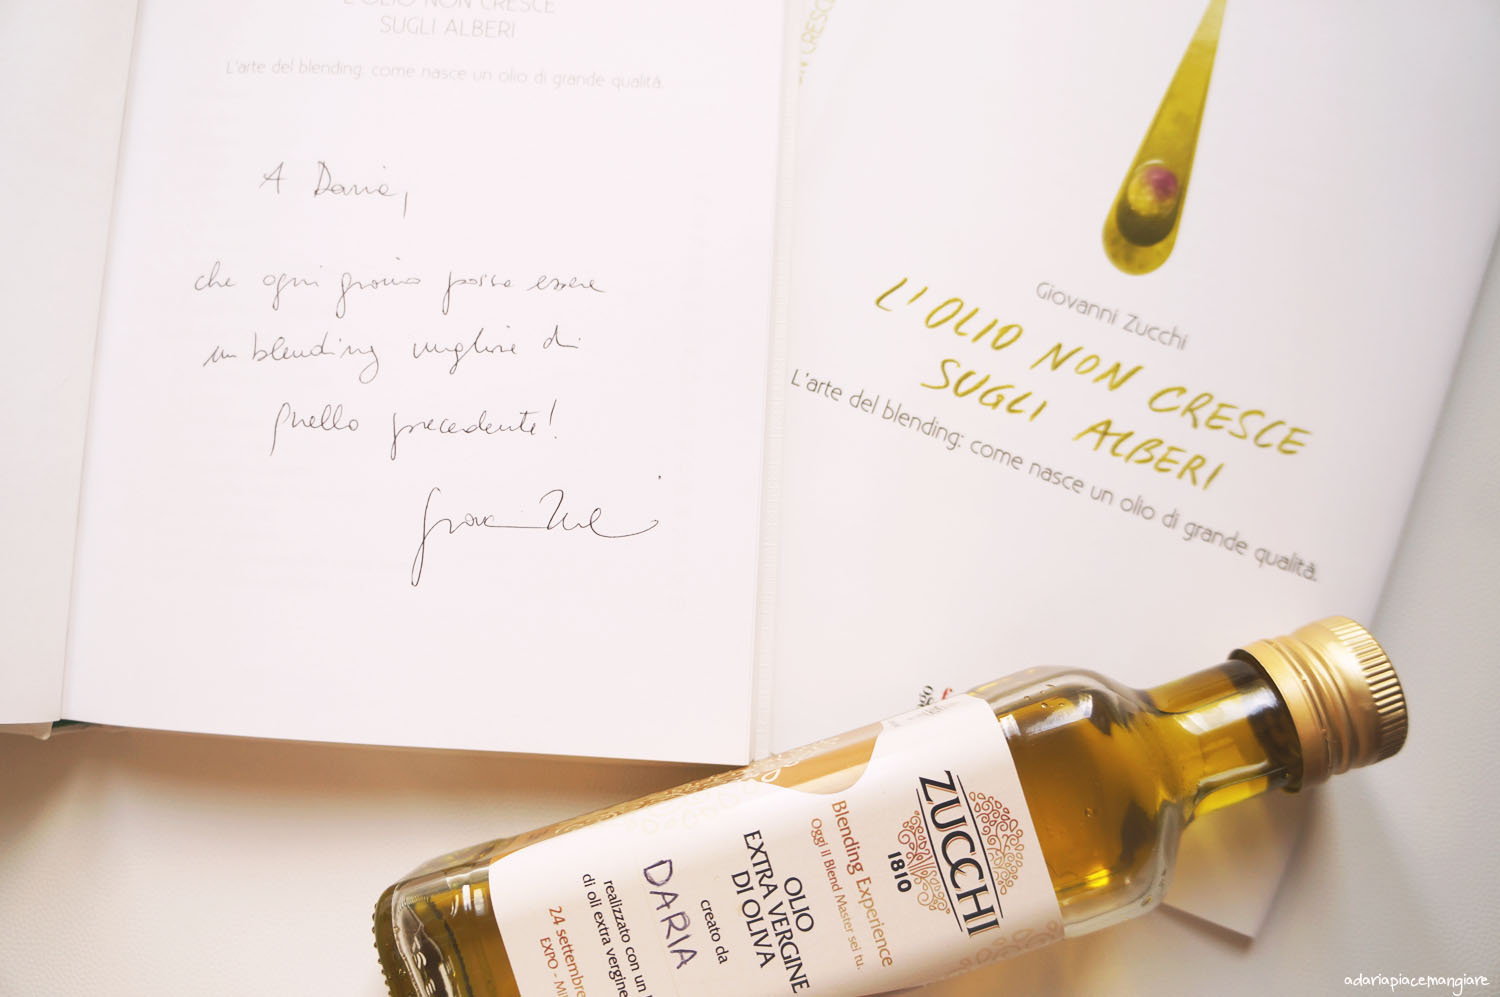 L'OLIO NON CRESCE
SUGLI ALBERI
L'arte del blending: come nasce un olio di grande qualità.
A Daria,
che ogni giorno possa essere
un blending migliore di
quello precedente!
Giovanni Zucchi
L'OLIO NON CRESCE
SUGLI ALBERI
L'arte del blending: come nasce un olio di grande qualità.
ZUCCHI
1810
Blending Experience
Oggi il Blend Master sei tu.
OLIO
EXTRA VERGINE
DI OLIVA
creato da
DARIA
realizzato con un
di oli extra vergine
24 settembre
EXPO - Mi
adariapiacemangiare